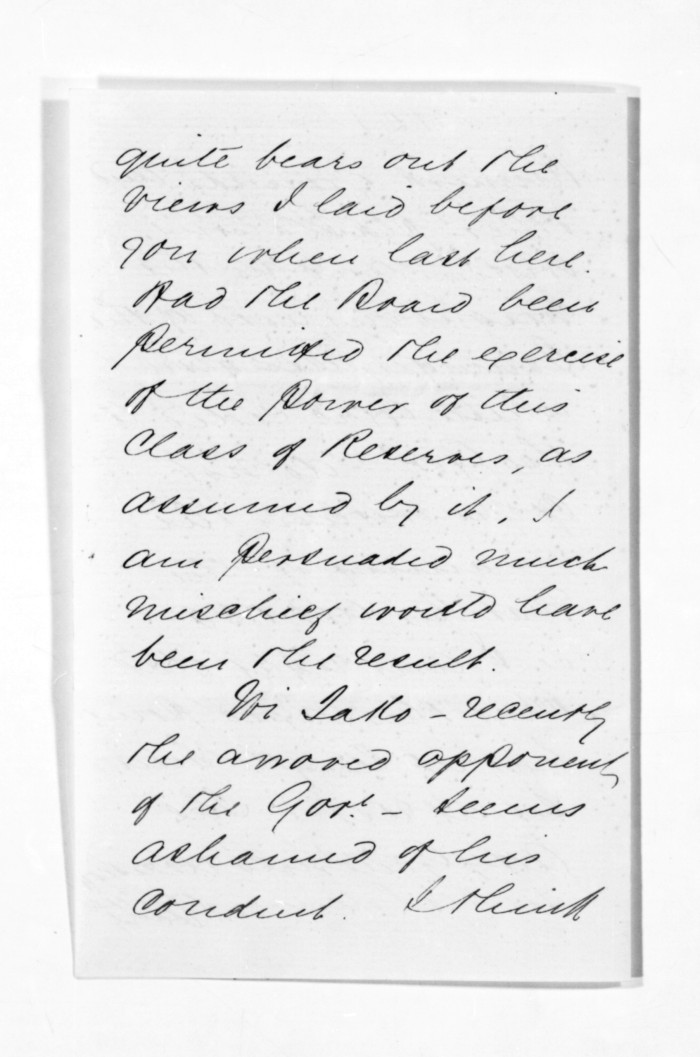 quite bears out the
views I laid before
you when last here.
Had the Board been
permitted the exercise
of the power of this
class of Reserves, as
assumed by it, I
am persuaded much
mischief would have
been the result.
Wi Tako - recently
the avowed opponent
of the Govt. - seems
ashamed of his
conduct. I think